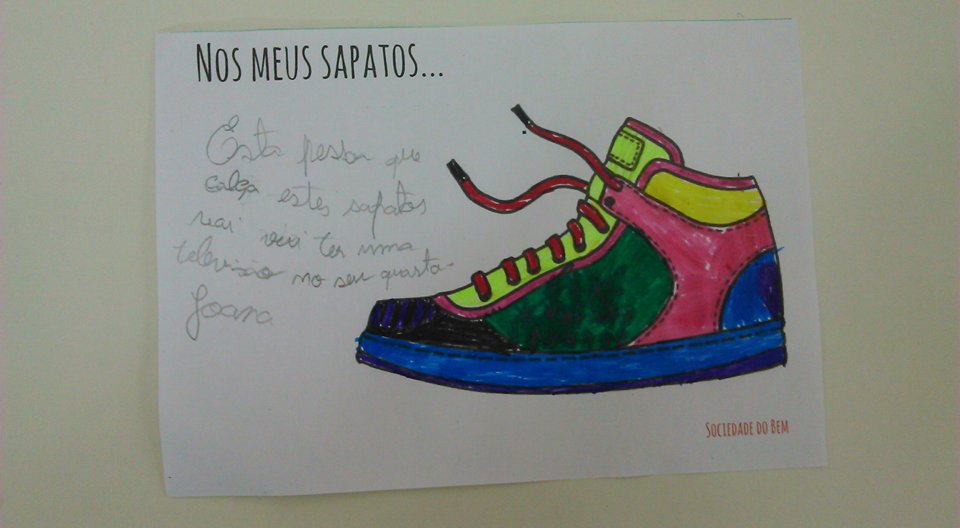 NOS MEUS SAPATOS...
Esta pessoa que
calça estes sapatos
vai ter uma
televisão no seu quarto.
Joana
SOCIEDADE DO BEM